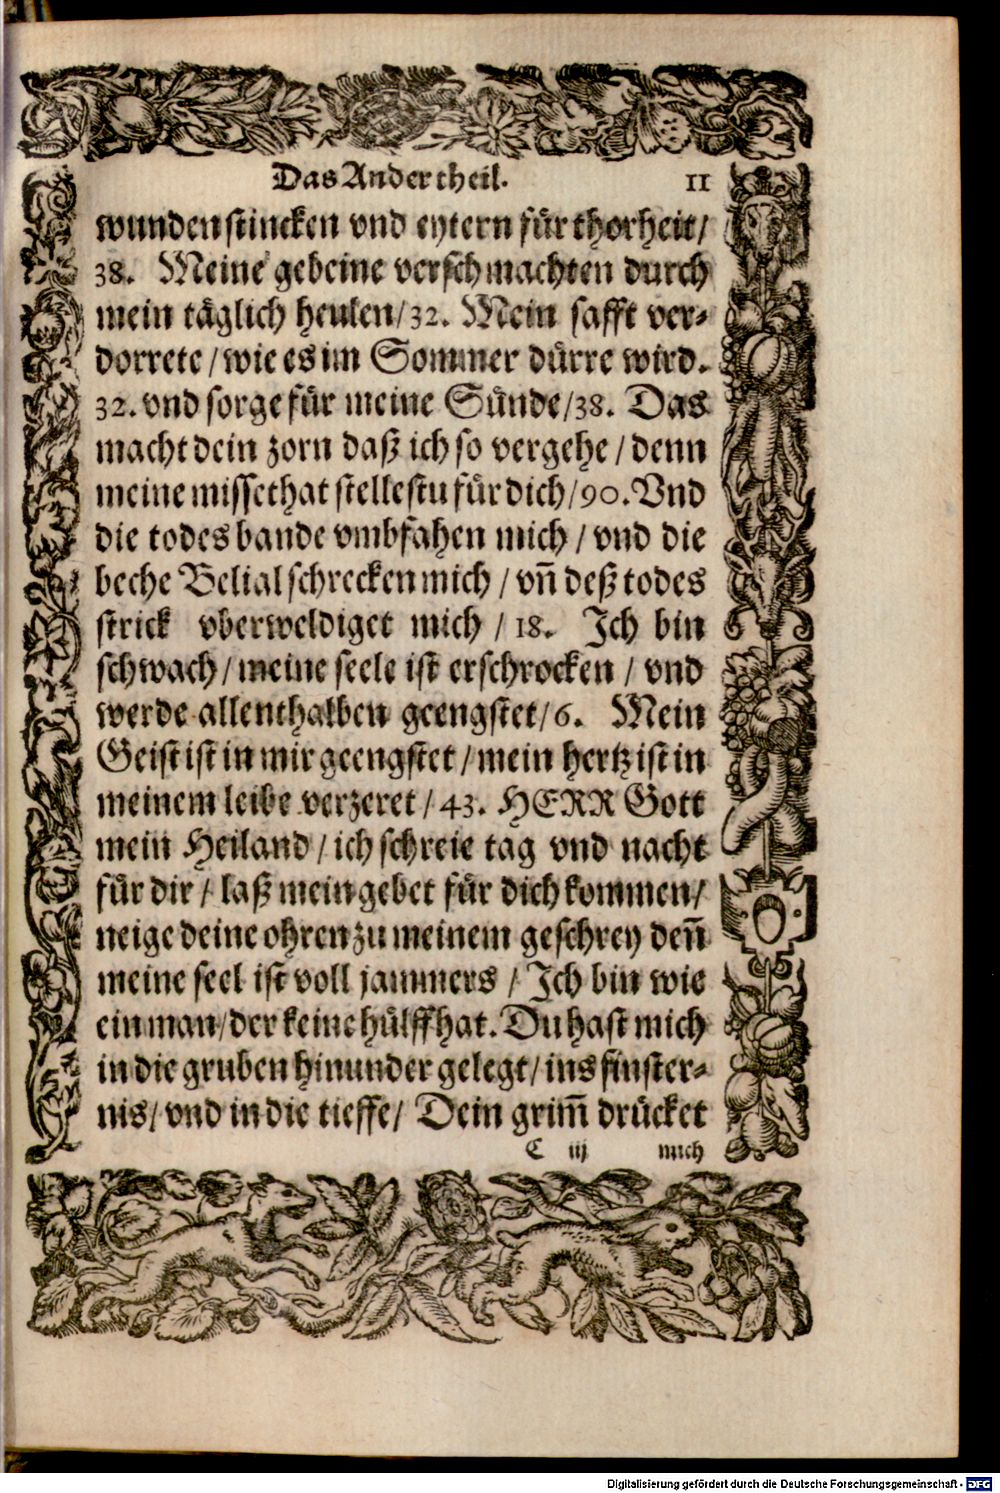 Das Ander theil. 11
wunden stincken vnd eytern für thorheit/
38. Meine gebeine verschmachten durch
mein täglich heulen/32. Mein safft ver-
dorrete/wie es im Sommer dürre wird.
32. vnd sorge für meine Sünde/38. Das
macht dein zorn daß ich so vergehe/denn
meine missethat stellestu für dich/90. Vnd
die todes bande vmbfahen mich/vnd die
beche Belial schrecken mich/vn̄ deß todes
strick vberweldiget mich/18. Ich bin
schwach/meine seele ist erschrocken/vnd
werde allenthalben geengstet/6. Mein
Geist ist in mir geengstet/mein hertz ist in
meinem leibe verzeret/43. HERR Gott
mein Heiland/ich schreie tag vnd nacht
für dir/laß mein gebet für dich kommen/
neige deine ohren zu meinem geschrey den̄
meine seel ist voll jammers/Ich bin wie
ein man/der keine hülff hat. Du hast mich
in die gruben hinunder gelegt/ins finster-
nis/vnd in die tieffe/Dein grim̄ drücket
C iij mich
Digitalisierung gefördert durch die Deutsche Forschungsgemeinschaft - DFG